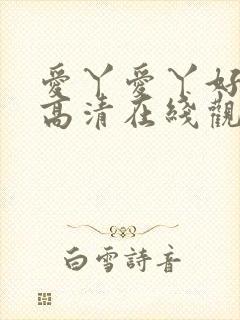 愛丫愛丫好
高清在綫觀
白雪詩音